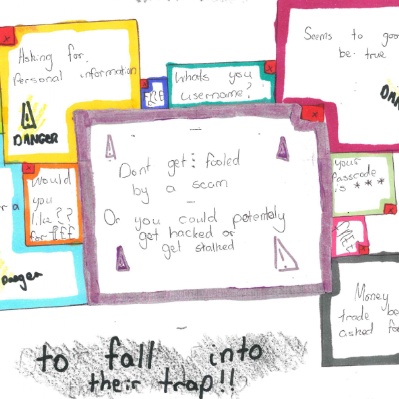 Asking for
Personal information
DANGER
Whats you
username?
Seems to goo
be true
DAN
Dont get fooled
by a scam
Or you could potentbly
get hacked or
get stalked
Would
you
like
for
your
Passcode
is ***
FREE
Danger
Money
trade be
asked fo
to fall into
their trap!!